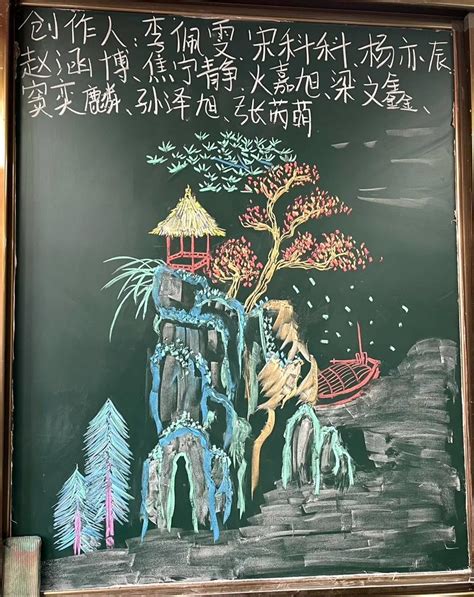 创作人:李佩雯、宋科科、杨亦辰、
赵涵博、焦宁静、火嘉旭、梁文鑫、
窦奕麟、孙泽旭、张芮萌